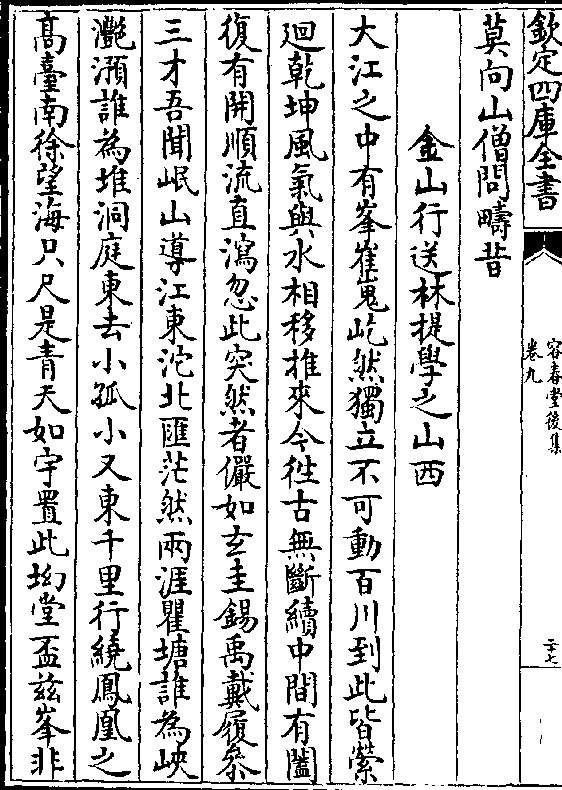 欽定四庫全書
容春堂後集
卷九
二十七
莫向山僧問疇昔
金山行送林提學之山西
大江之中有峯崔嵬屹然獨立不可動百川到此皆縈
迴乾坤風氣與水相移推來今徃古無斷續中間有闔
復有開順流直瀉忽此突然者儼如玄圭錫禹戴履叅
三才吾聞岷山導江東沱北匯茫然兩涯瞿塘誰為峽
灔澦誰為堆洞庭東去小孤小又東千里行繞鳳凰之
髙臺南徐望海只尺是青天如宇置此坳堂盃兹峯非